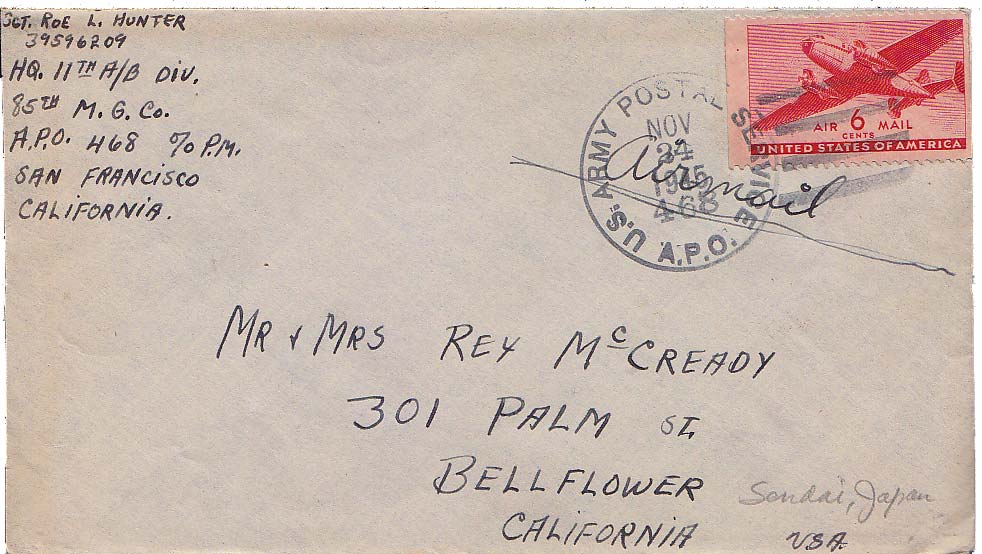 SGT. ROE L. HUNTER
39596209
HQ. 11TH A/B DIV.
85TH M. G. CO.
A.P.O. 468 % P.M.
SAN FRANCISCO
CALIFORNIA.
U.S. ARMY POSTAL SERVICE
NOV
24
1945
468
A.P.O.
Air mail
AIR 6 MAIL
CENTS
UNITED STATES OF AMERICA
MR & MRS REX MCCREADY
301 PALM ST.
BELLFLOWER
CALIFORNIA
Sendai, Japan
USA